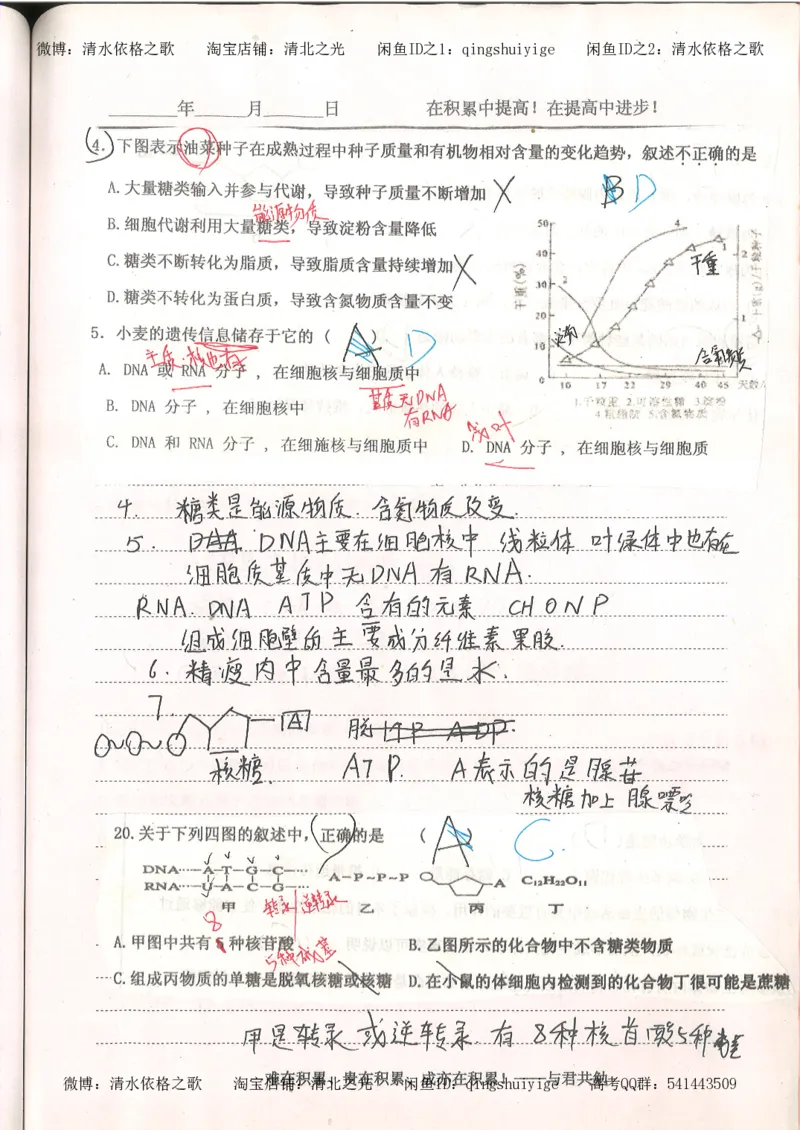 微博：清水依格之歌 淘宝店铺：清北之光 闲鱼ID之1：qingshuiyige 闲鱼ID之2：清水依格之歌
年 月 日 在积累中提高！在提高中进步！
4. 下图表示油菜种子在成熟过程中种子质量和有机物相对含量的变化趋势，叙述不正确的是
A.大量糖类输入并参与代谢，导致种子质量不断增加 X B D
能源物质
B.细胞代谢利用大量糖类，导致淀粉含量降低
C.糖类不断转化为脂质，导致脂质含量持续增加 X
D.糖类不转化为蛋白质，导致含氮物质含量不变
干质(%)
50 40 30 20 10 0
4 1 2
干重
淀粉
含氮物质
2 1
10 17 22 29 40 45 天数/d
1.千粒重 2.可溶性糖 3.淀粉
4.粗脂肪 5.含氮物质
5. 小麦的遗传信息储存于它的（ A ） D
A. DNA 或 RNA 分子 ，在细胞核与细胞质中
基质无DNA
有RNA
B. DNA 分子 ，在细胞核中
C. DNA 和 RNA 分子 ，在细施核与细胞质中 D. DNA 分子 ，在细胞核与细胞质
4. 糖类是能源物质. 含氮物质改变.
5. DNA主要在细胞核中 线粒体 叶绿体中也有
细胞质基质中无DNA 有RNA.
RNA. DNA ATP 含有的元素 CHONP
组成细胞壁的主要成分纤维素果胶.
6. 精瘦肉中含量最多的是水.
7. A 脱
核糖. ATP. A表示的是腺苷
核糖加上腺嘌呤
20.关于下列四图的叙述中，正确的是 （ A ） C
DNA···—A—T—G—C—
RNA···—U—A—C—G—···
A—P~P~P O A C₁₂H₂₂O₁₁
甲 乙 丙 丁
转录/逆转录
8
A.甲图中共有5种核苷酸 B.乙图所示的化合物中不含糖类物质
5种碱基
C.组成丙物质的单糖是脱氧核糖或核糖 D.在小鼠的体细胞内检测到的化合物丁很可能是蔗糖
甲是转录或逆转录. 有8种核苷酸5种
难在积累！贵在积累、成亦在积累！——与君共勉
微博：清水依格之歌 淘宝店铺：清北之光 闲鱼ID：qingshuiyige 高考QQ群：541443509